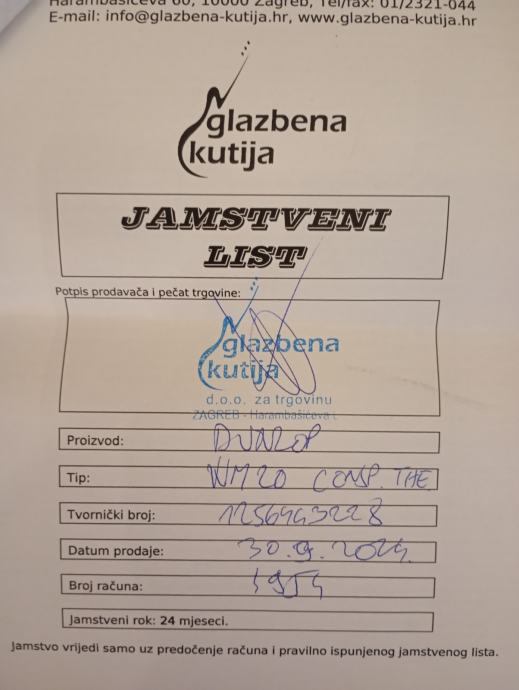 Harambašićeva 60, 10000 Zagreb, Tel/fax: 01/2321-044
E-mail: info@glazbena-kutija.hr, www.glazbena-kutija.hr
glazbena
kutija
JAMSTVENI
LIST
Potpis prodavača i pečat trgovine:
glazbena
kutija
d.o.o. za trgovinu
ZAGREB - Harambašićeva
Proizvod: DUNLOP
Tip: WM20 COMP. THE
Tvornički broj: 1256493228
Datum prodaje: 30.9.2024.
Broj računa:
Jamstveni rok: 24 mjeseci.
Jamstvo vrijedi samo uz predočenje računa i pravilno ispunjenog jamstvenog lista.